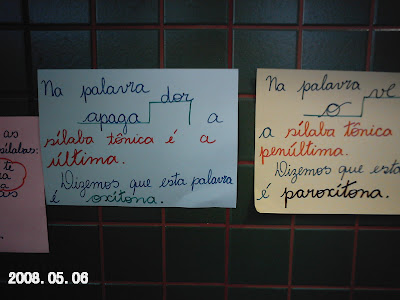 as
sílabas:
te
Na palavra
apagador a
sílaba tônica é a
última.
Dizemos que esta palavra
é oxítona.
Na palavra
o ve
a sílaba tônica
penúltima.
Dizemos que esta
é paroxítona.
2008.05.06